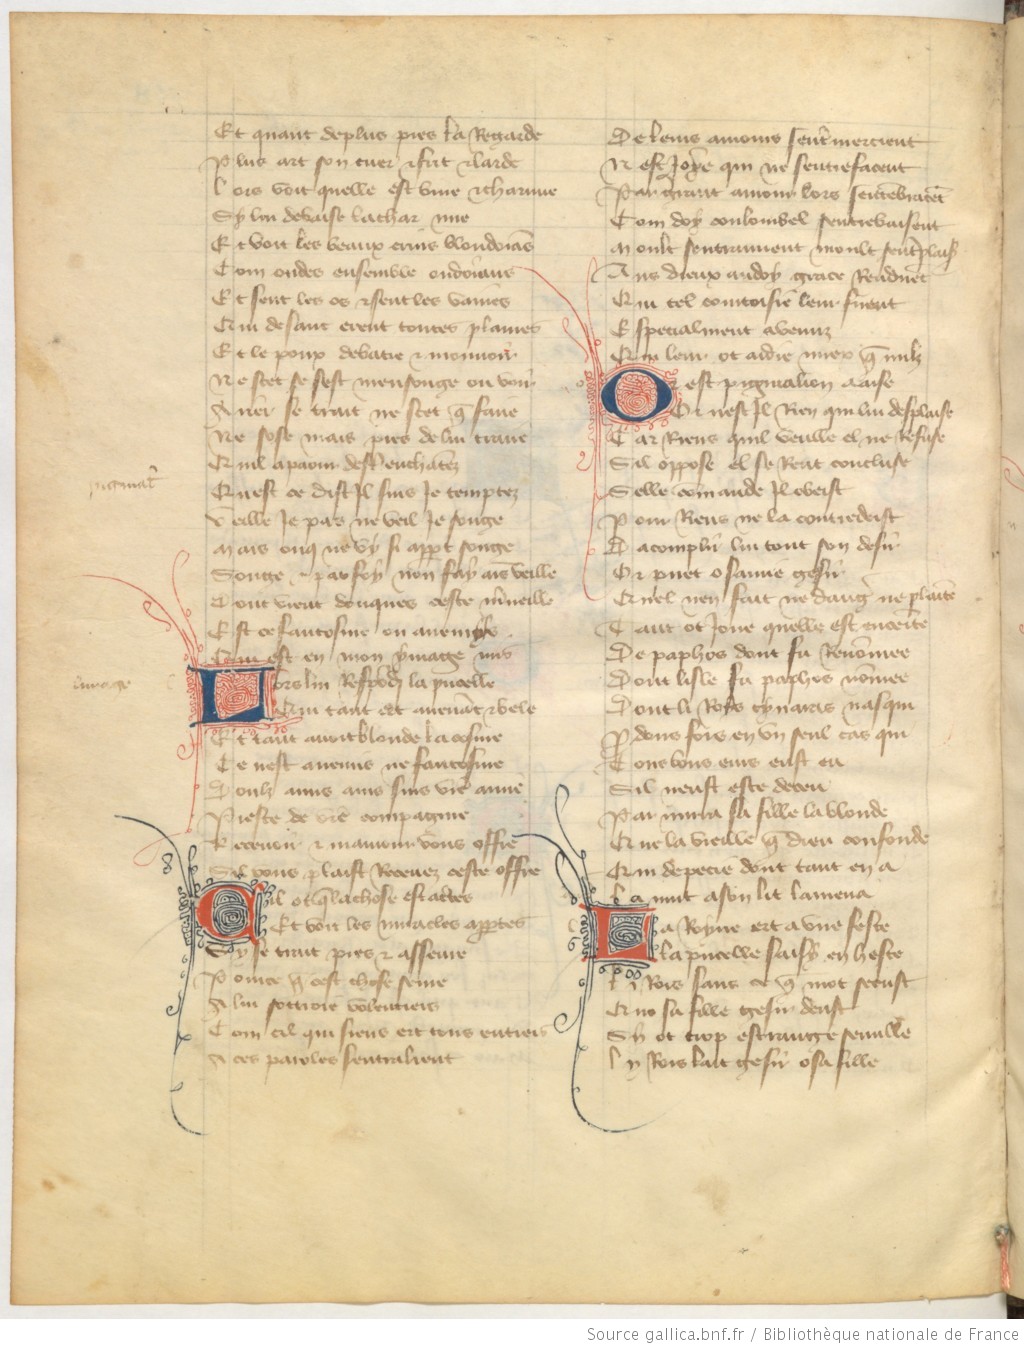 Et quant de plus pres la Regarde
Plus art son cuer & frit & larde
Lors voit quelle est viue & charnue
Sy lui debaise la char nue
Et voit les beaux crins blondoiās
Com ondes ensemble ondoians
Et sent les os & sent les vaines
Qui de sanc erent toutes plaines
Et le poux debatre & mouuoir
Ne scet se cest mensonge ou voir
Arrier se trait ne scet q̄ faire
Ne sose mais pres de lui traire
Quil a paour destr̄ enchātez
Quest ce dist Il suis Je temptez
pigmal̄
Veille Je pas ne veil Je songe
Mais onq̄ ne vy si app̄t songe
Songe par foy non fay ais veille
Dont vient donques ceste m̄ueille
Est ce fantosme ou anemys
Qui est en mon ymage mis
limage
Lors lui Respōdi la pucelle
Qui tant ert auenāt & bele
Et tant auoit blonde la cosme
Ce nest anemis ne fantosme
Doulz amis ains suis vr̄e amie
Preste de vr̄e compagnie
Receuoir & mamour vous offre
Sil vous plaist Receuez ceste offre
Cil ot q̄ la chose est actes
Et voit les miracles app̄tes
Sy se trait pres & asseure
Pource q̄ cest chose seure
A lui sottroie voulentiers
Com cil qui siens ert tous entiers
A ces paroles sentralient
De leurs amours sentr̄mercient
Nest Joye qui ne sentrefacent
Par grant amour lors sentr̄bracēt
Com doy coulombel sentrebaisent
Moult sentraiment moult sentr̄plaisēt
Aus dieux andoy grace Rendirēt
Qui tel courtoisie leur firent
Especialment a venuz
Qui leur ot aidie miex q̄ nulz
Or est pigmalion a aise
Or nest Il Rien qui lui desplaise
Car Riens quil veulle el ne Refuse
Sil oppose el se Rent concluse
Selle comande Il obeist
Pour Riens ne la contredeist
Dacomplir lui tout son desir
Or puet o samie gesir
Quel nen fait ne dangr̄ ne plaīte
Tant ot Joue quelle est enceīte
De paphos dont fu Renōmee
Dont lisle fu paphos nōmee
Dont li Roys cynaras nasqui
Prodons fors en vn seul cas qui
Tous bons eurs eust eu
Sil neust este deceu
Par mirra sa fille la blonde
Que la vieille q̄ dieu confonde
Qui de pecie dont tant en a
La nuit a son lit lamena
La Royne ert a vne feste
La pucelle saisy en heste
Ly Rois sans ce q̄ mot seust
Quo sa fille gesir deust
Sy ot trop estrange semille
Ly Rois lait gesir o sa fille
Source gallica.bnf.fr / Bibliothèque nationale de France